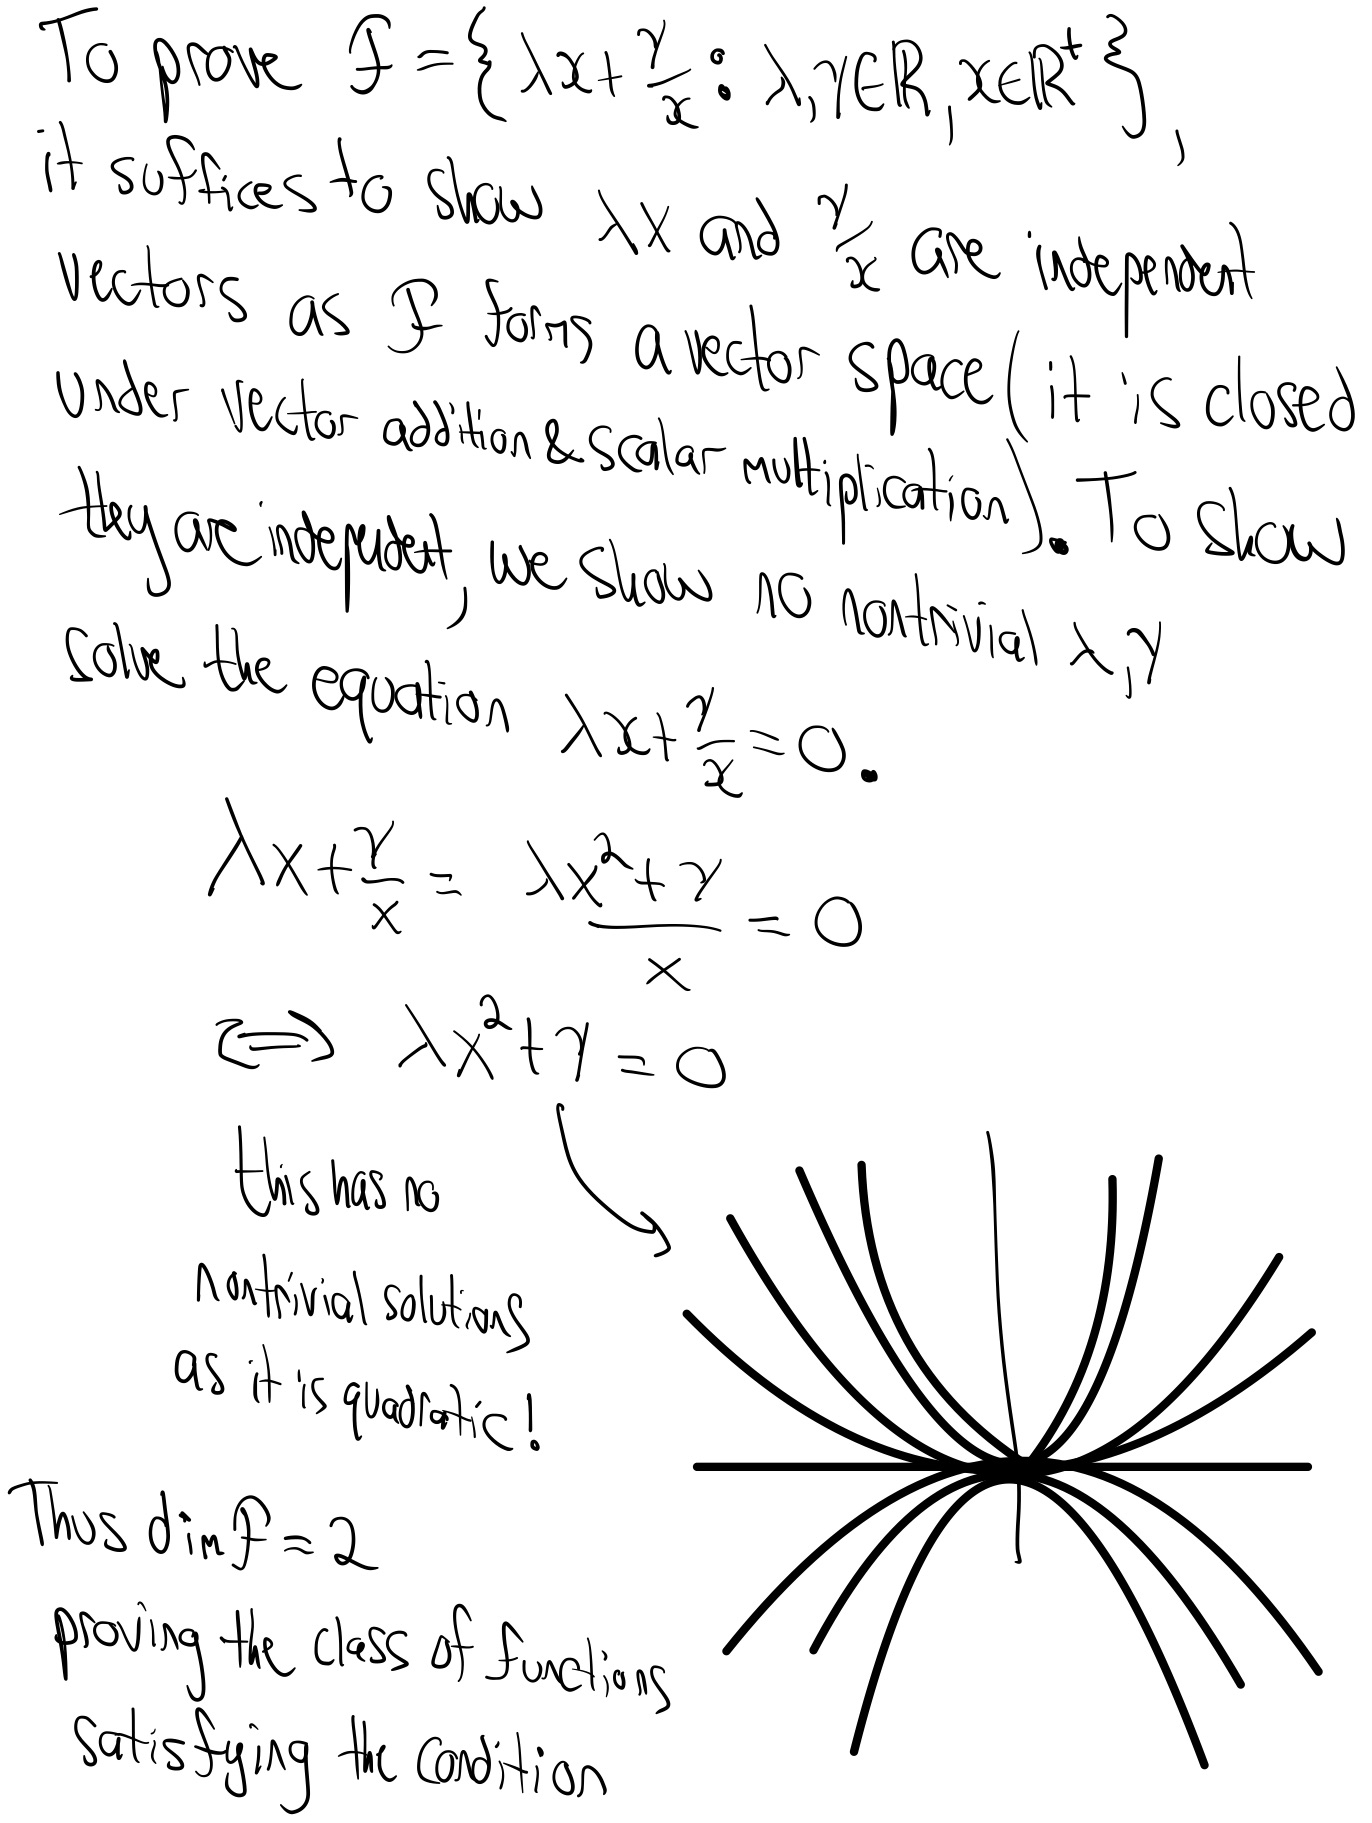 To prove F = { λx + γ/x : λ, γ ∈ ℝ, x ∈ ℝ⁺ },
it suffices to show λx and γ/x are independent
vectors as F forms a vector space (it is closed
under vector addition & scalar multiplication). To show
they are indepedent, we show no nontrivial λ, γ
solve the equation λx + γ/x = 0.
λx + γ/x = (λx² + γ)/x = 0
⟺ λx² + γ = 0
this has no
nontrivial solutions
as it is quadratic!
Thus dim F = 2
proving the class of functions
satisfying the condition